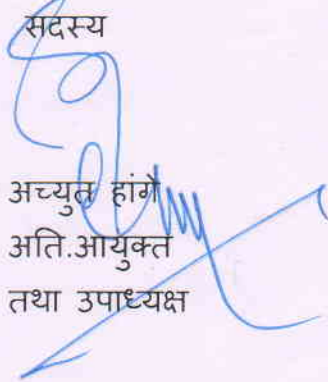 सदस्य
अच्युत हांगे
अति.आयुक्त
तथा उपाध्यक्ष